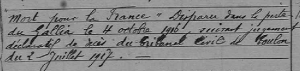 Mort pour la France - Disparu dans la perte
du Gallia le 4 octobre 1916, suivant jugement
déclaratif de décès du Tribunal Civil de Toulon
du 2 Juillet 1917. -